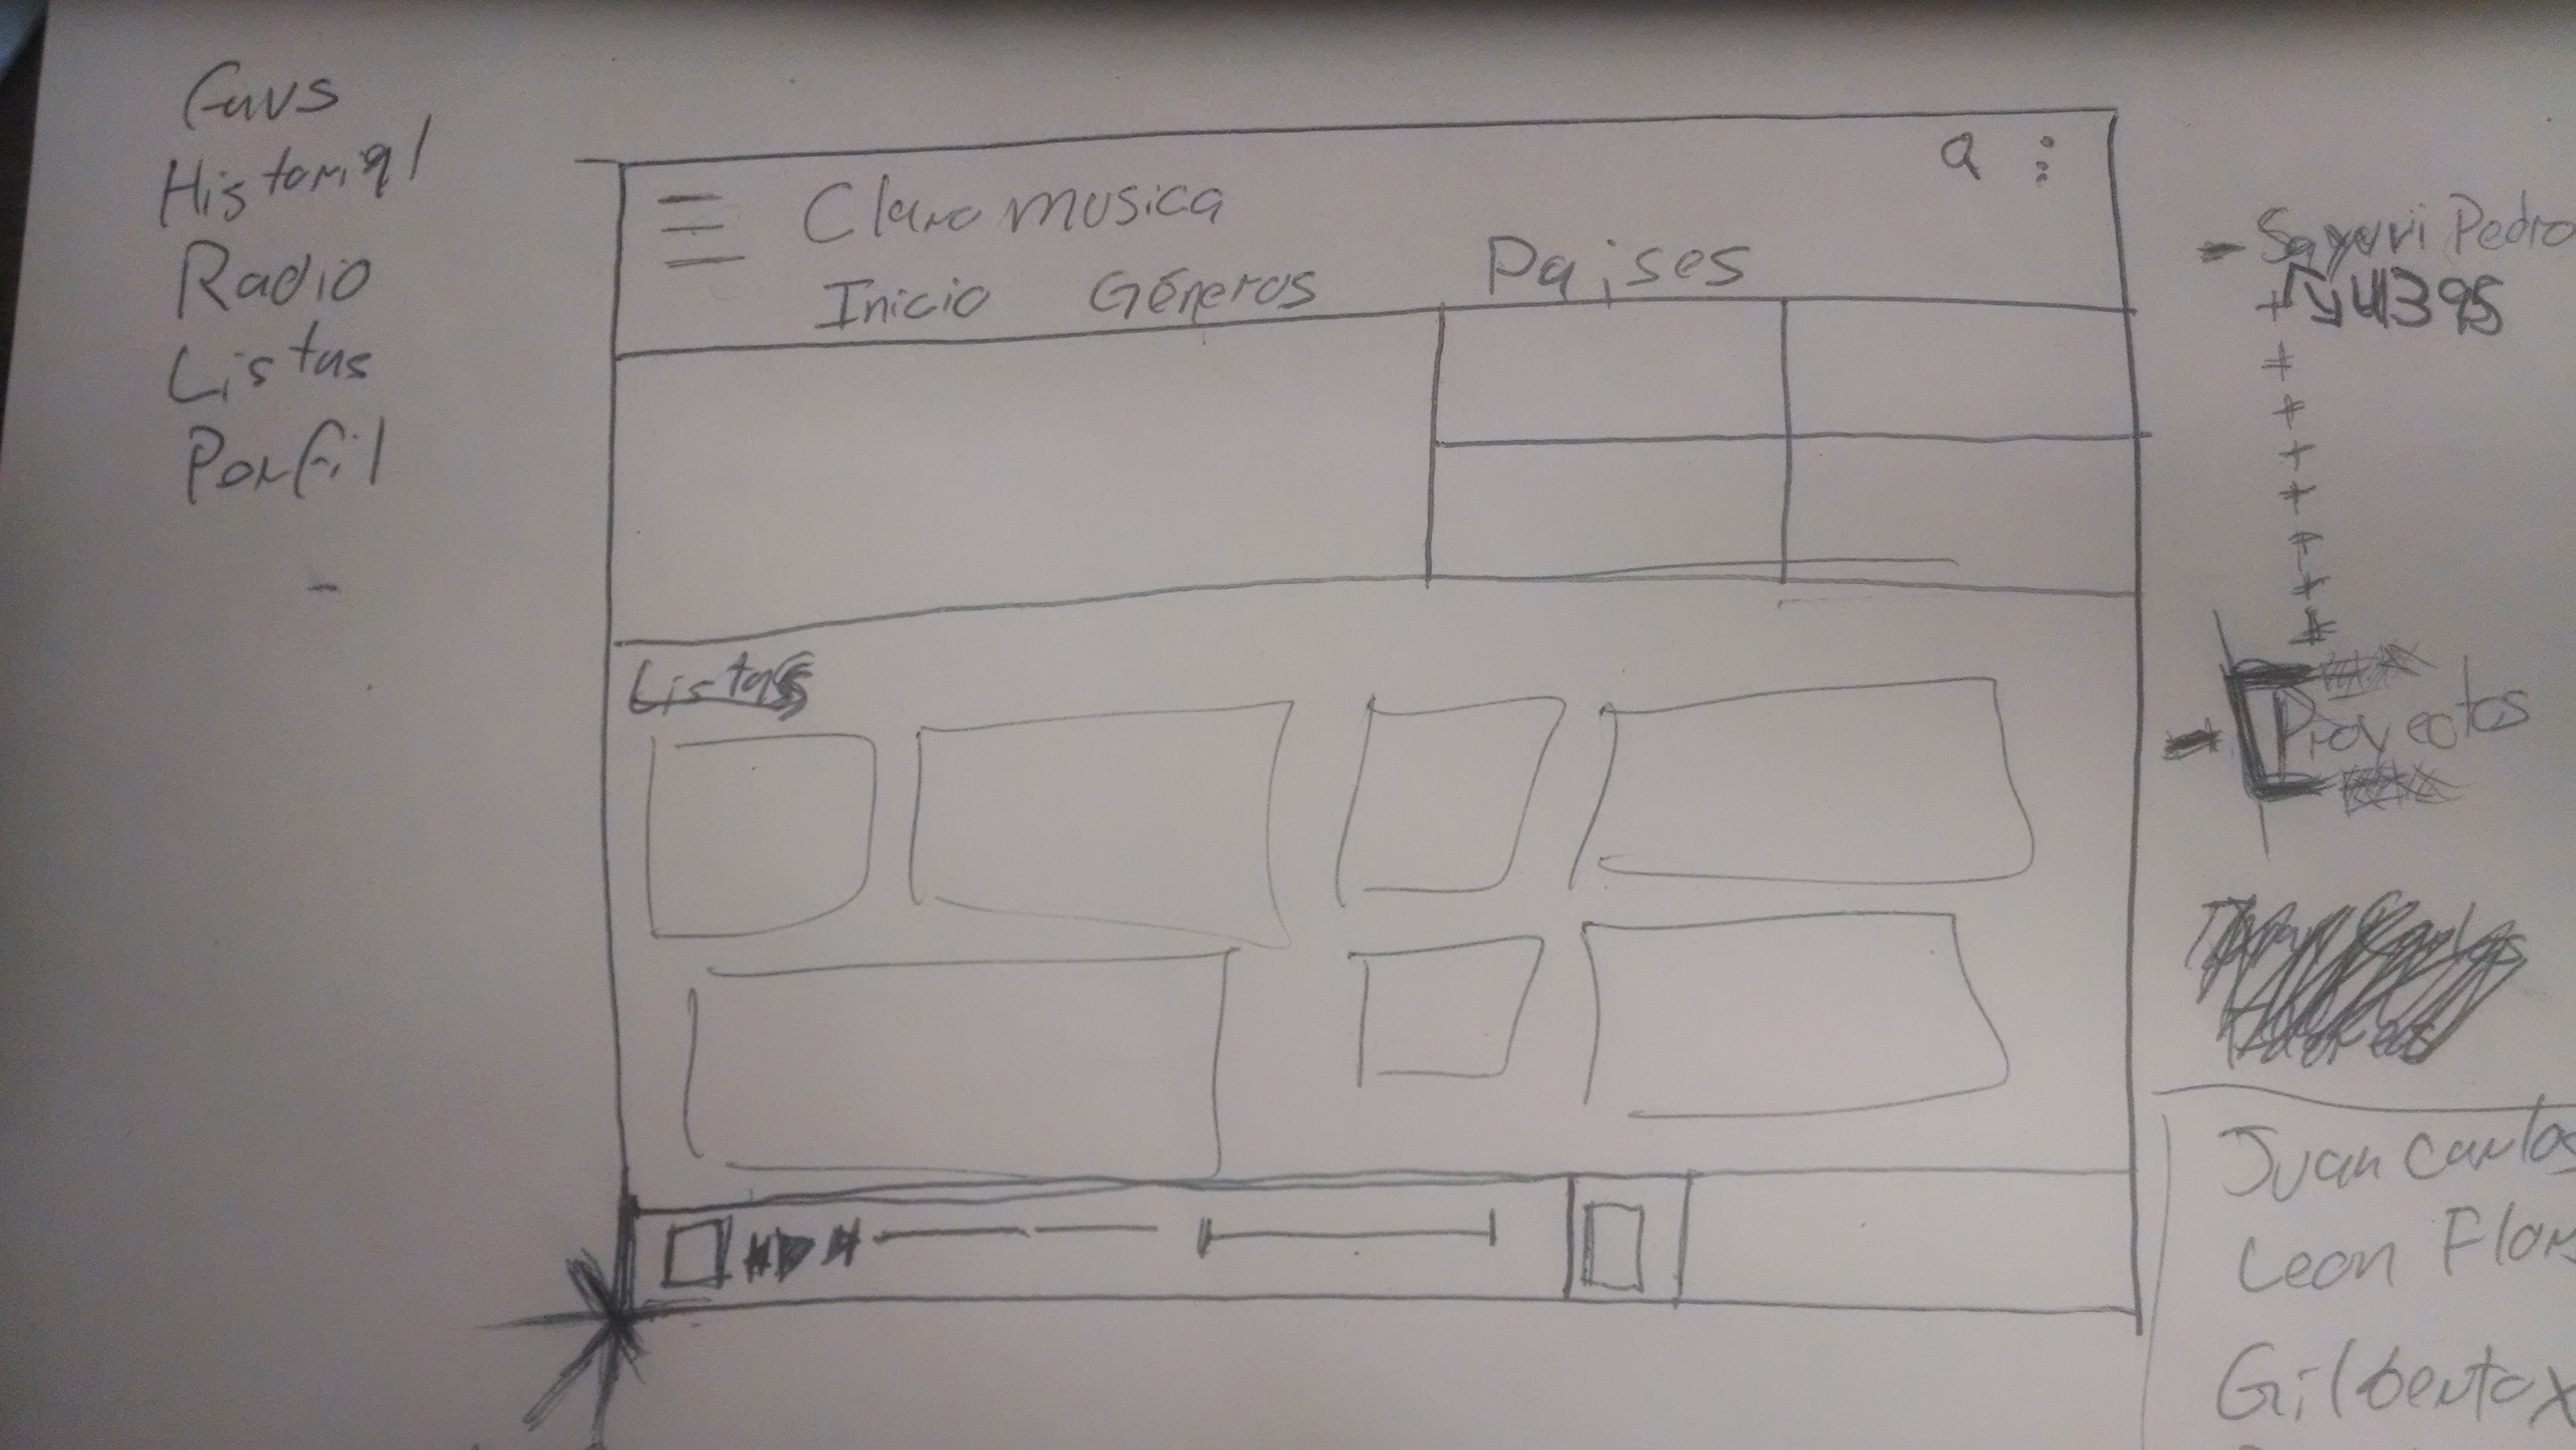 Favs
Historial
Radio
Listas
Perfil
Claro musica
Inicio Géneros Paises
Listas
Sayuri Pedro
Proyectos
Juan Carlos
Leon Flor
Gilberto